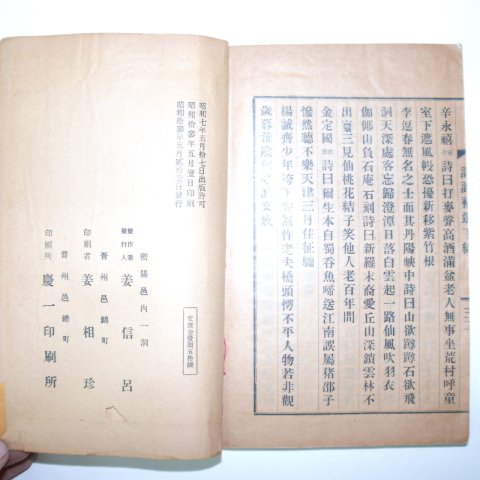 辛永禧 詩曰打麥聲高酒滿盆老人無事坐荒村呼童
室下遮風幔恐擾新移紫竹根
李逗春無名之士而其丹陽峽中詩曰山欲蹲蹲石欲飛
洞天深處客忘歸澄潭日落白雲起一路仙風吹羽衣
伽倻山負石庵石刻詩曰新羅末裔愛丘山深鎖雲林不
出寰三見仙桃花結子笑他人老百年間
金定國 詩曰爾生本自蜀呑魚啼送江南誤屬猪邵子
慘然聽不樂天津三月住征驢
楊誠齋少年 無作老夫橋頭愕不平人物若非觀
歲暮
昭和七年五月拾七日出版許可
昭和拾參年五月壹日印刷
昭和拾參年五月貳拾壹日發行
密陽邑內一洞
發行人 姜信呂
晋州邑錦町
印刷者 姜相珍
晋州邑錦町
印刷所 慶一印刷所
定價金壹圓五拾錢